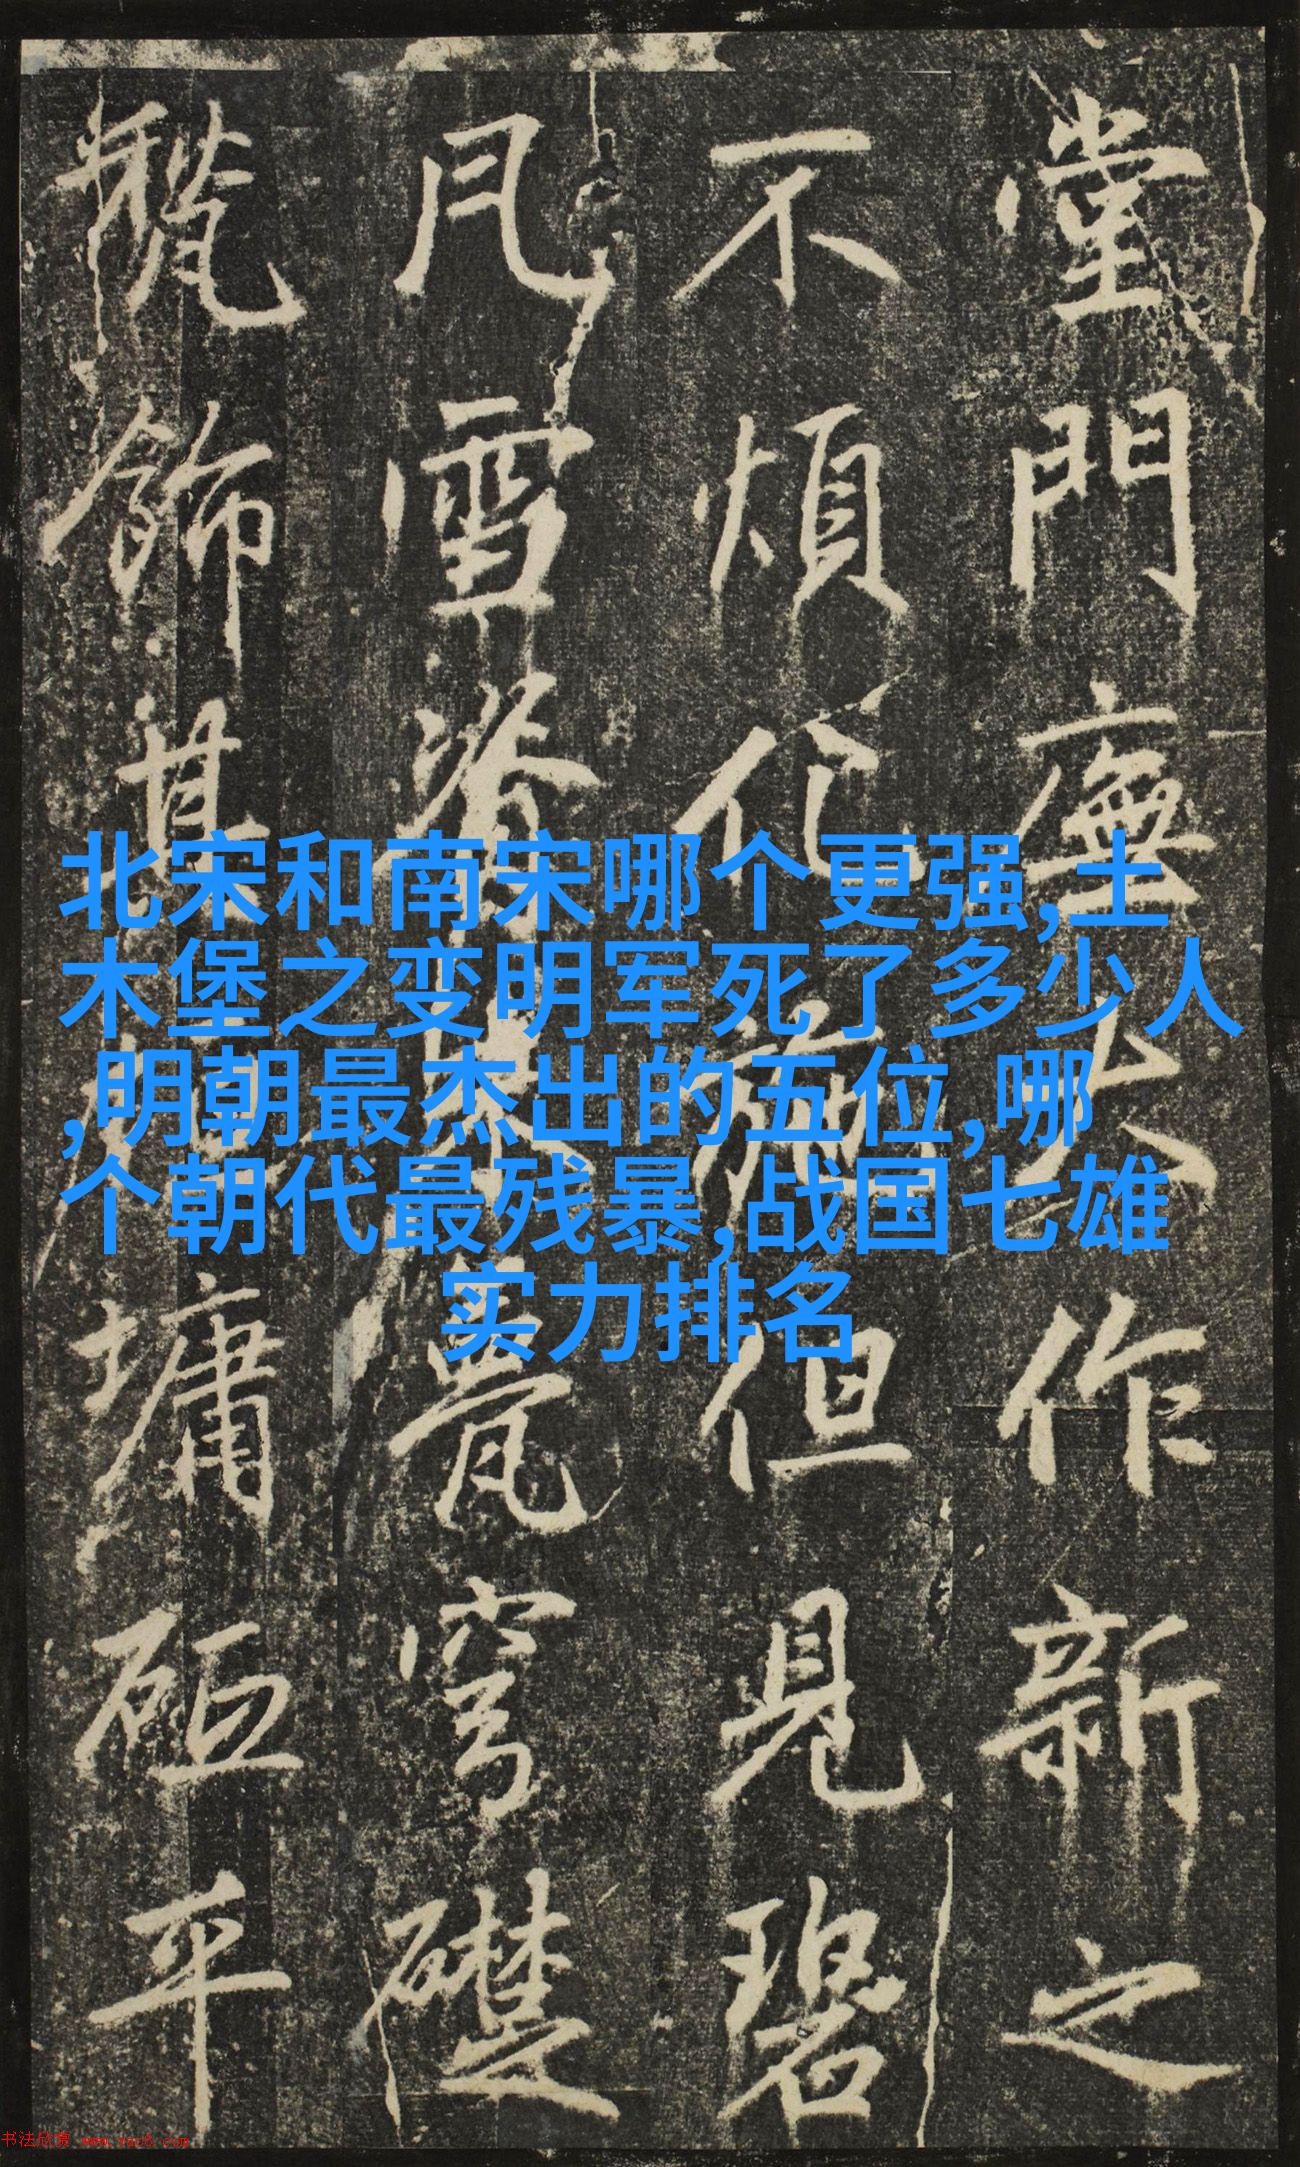 堂門廡大作新之
不煩化施但見碧
凡雪脊甍穹礎
飾其墉砠平
北宋和南宋哪个更强,土
木堡之变明军死了多少人
,明朝最杰出的五位,哪
个朝代最残暴,战国七雄
实力排名
书法欣赏 www.yac8.com